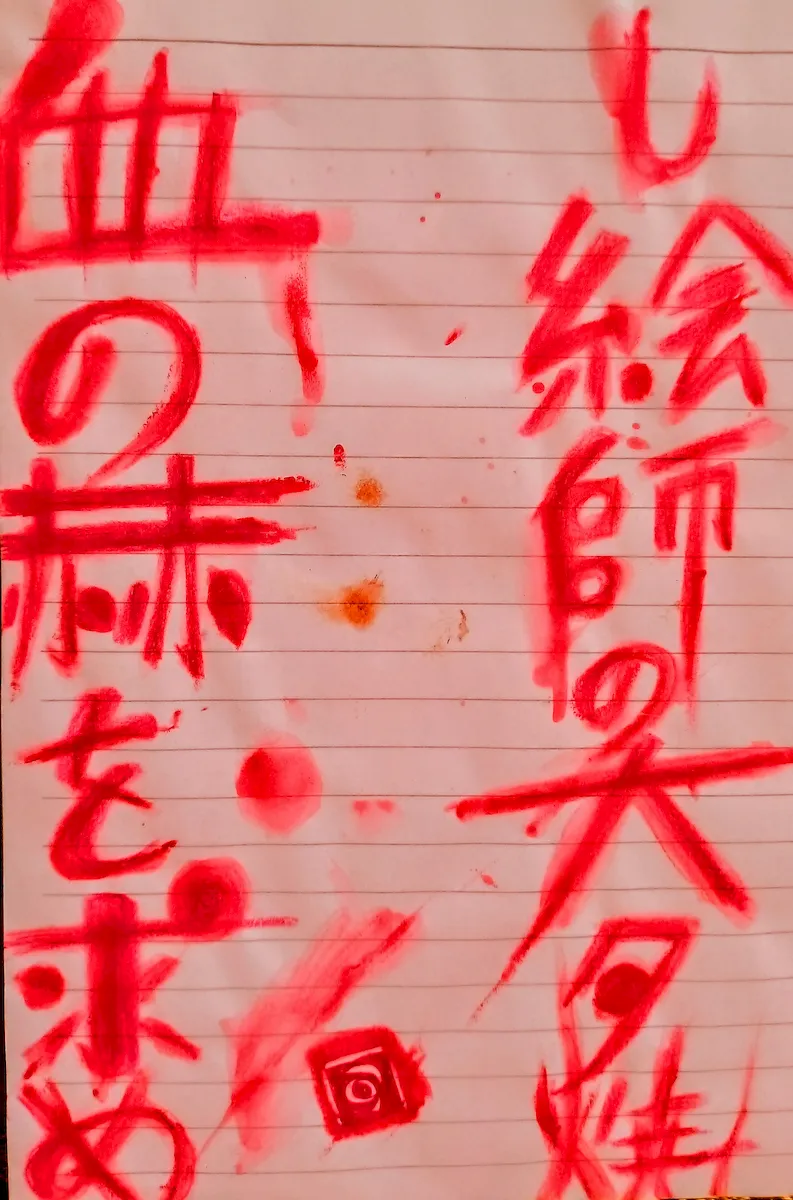 血の赫を求め
し絵師の大夕焼